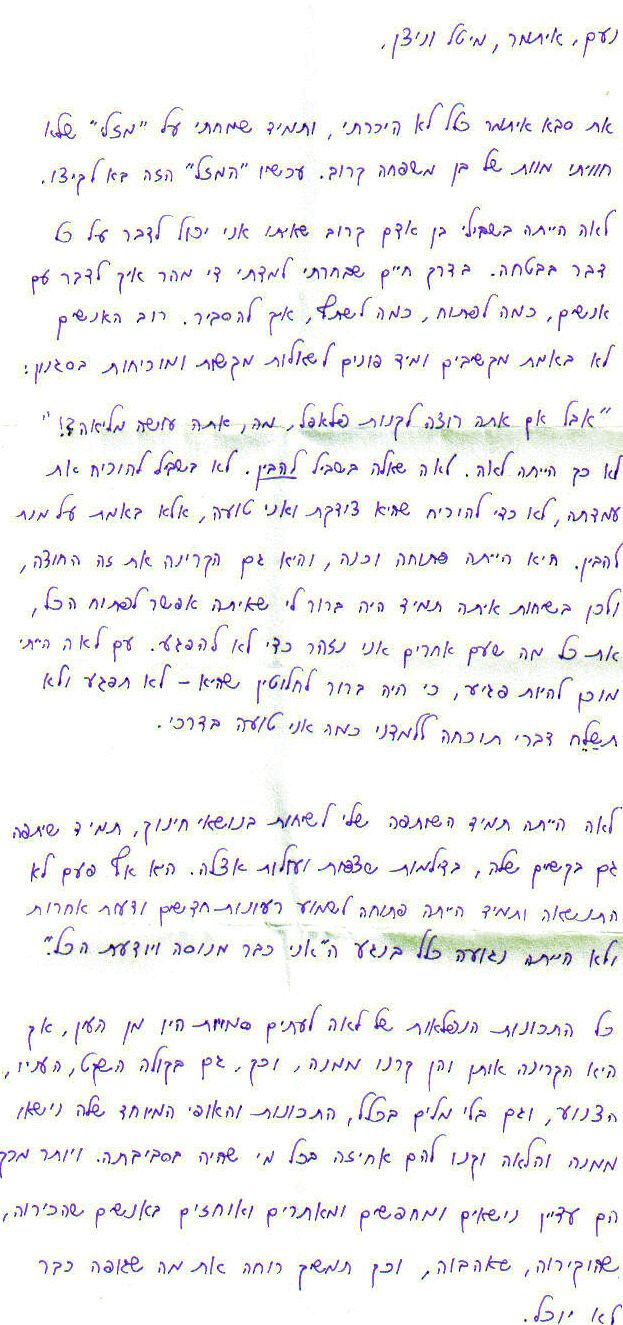 נעם, איתמר, מיטל וניצן,
את סבא איתמר כלל לא היכרתי, ותמיד שמחתי על "מזלי" שלא
חוויתי מוות של בן משפחה קרוב. עכשיו "המזל" הזה בא לקיצו.
לאה הייתה בשבילי בן אדם קרוב שאיתו אני יכול לדבר על כל
דבר בבטחה. בדרך חיים שבחרתי למדתי די מהר איך לדבר עם
אנשים, כמה לפתוח, כמה לשתף, איך להסביר. רוב האנשים
לא באמת מקשיבים ומיד פונים לשאלות מקשות ומוכיחות בסגנון:
"אבל אם אתה רוצה לקנות פלאפל, מה, אתה עושה מליאה?!"
לא כך הייתה לאה. לאה שאלה בשביל להבין. לא בשביל להוכיח את
עמדתה, לא כדי להוכיח שהיא צודקת ואני טועה, אלא באמת על מנת
להבין. היא הייתה פתוחה וכנה, והיא גם הקרינה את זה החוצה,
ולכן בשיחות איתה תמיד היה ברור לי שאיתה אפשר לפתוח הכל,
את כל מה שעם אחרים אני נזהר כדי לא להפגע. עם לאה הייתי
מוכן להיות פגיע, כי היה ברור לחלוטין שהיא - לא תפגע ולא
תשלח דברי תוכחה ללמדני כמה אני טועה בדרכי.
לאה הייתה תמיד השותפה שלי לשיחות בנושאי חינוך, תמיד שיתפה
גם בקשיים שלה, בדילמות שצפות ועולות אצלה. היא אף פעם לא
התנשאה ותמיד הייתה פתוחה לשמוע רעיונות חדשים ודעות אחרות
ולא הייתה נגועה כלל בנגע ה"אני כבר מנוסה ויודעת הכל".
כל התכונות הנפלאות של לאה לעתים סמויות היו מן העין, אך
היא הקרינה אותן והן קרנו ממנה, וכך, גם בקולה השקט, העניו,
הצנוע, וגם בלי מלים בכלל, התכונות והאופי המיוחד שלה נישאו
ממנה והלאה וקנו להם אחיזה בכל מי שהיה בסביבתה. ויותר מכך
הם עדיין נישאים ומחפשים ומאתרים ואוחזים באנשים שהכירוה,
שהוקירוה, שאהבוה, וכך תמשיך רוחה את מה שגופה כבר
לא יוכל.